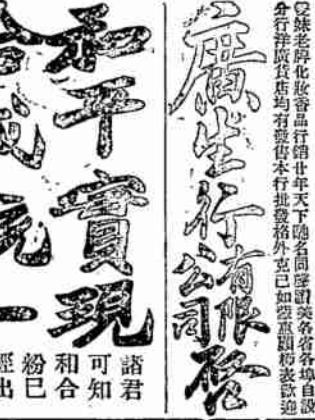 雙妹老牌化妝香品行銷廿年天下馳名同聲讚美各省各埠自設
分行洋廣貨店均有發售本行批發格外克己如蒙惠顧極表歡迎
廣生行有限公司啓
和平實現
統一
諸君
可知
和合
粉已
經出